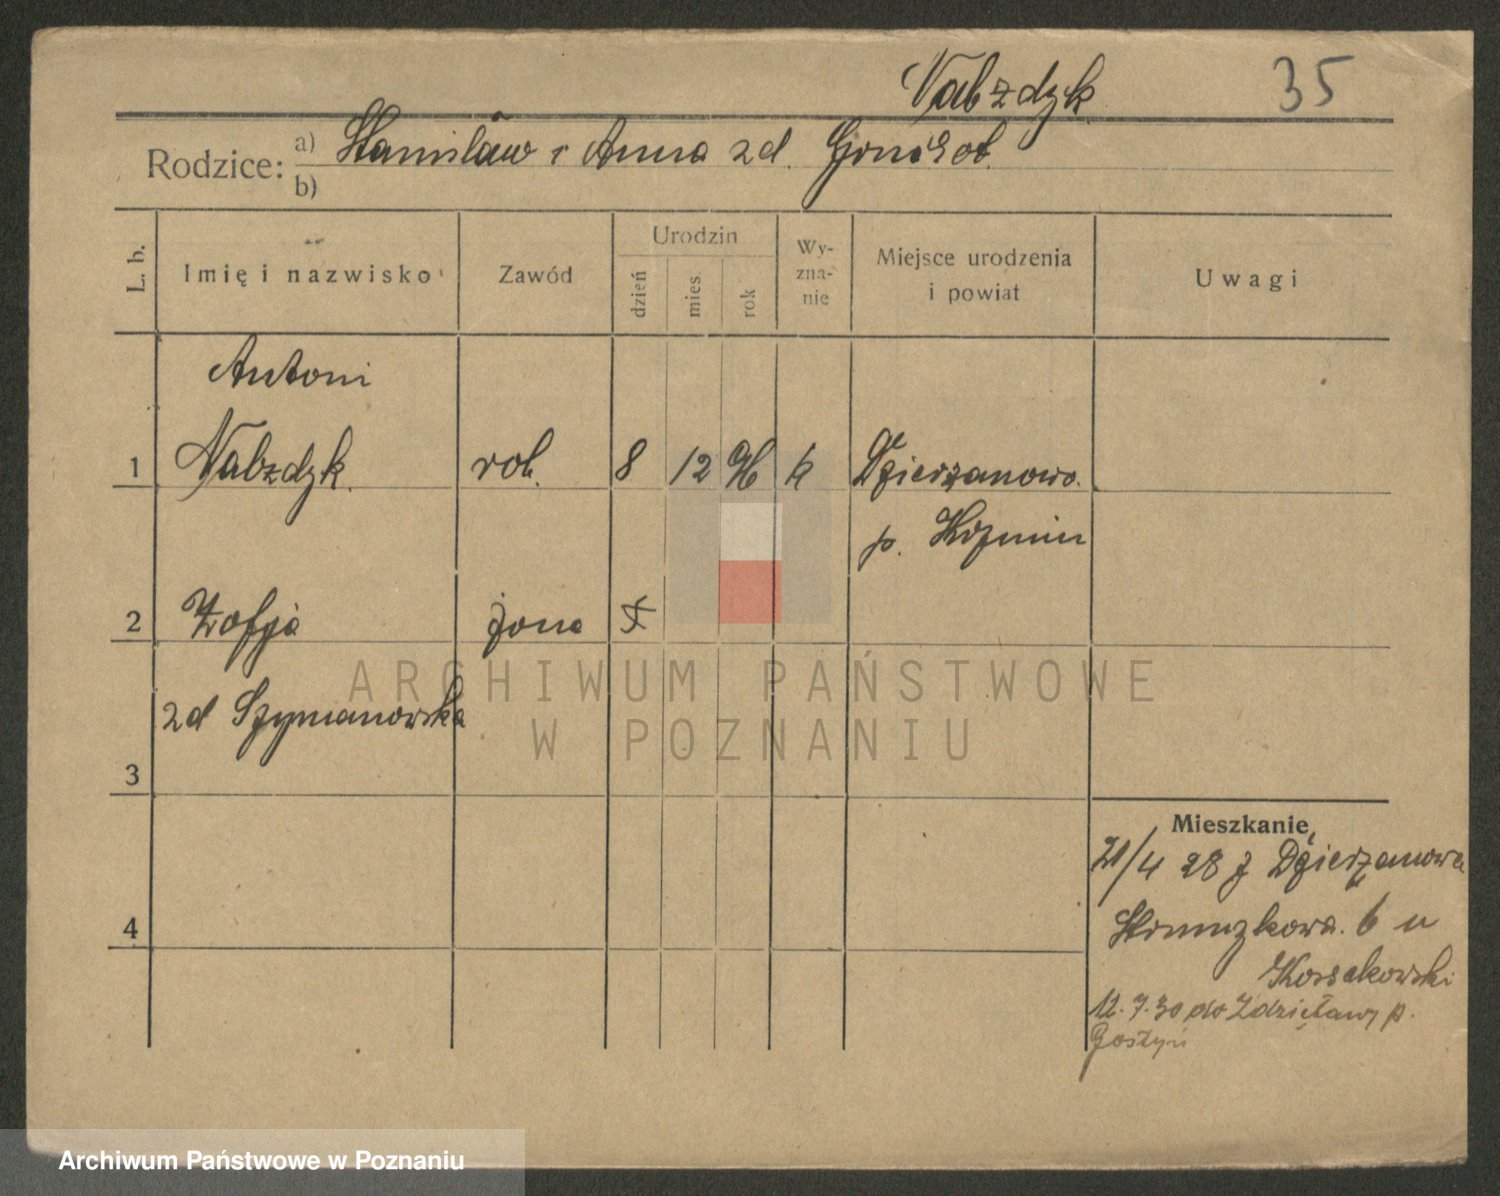 Nabzdyk 35
Rodzice: a) Stanisław i Anna zd.
b)
L. b. Imię i nazwisko Zawód Urodzin dzień mies. rok Wy-zna-nie Miejsce urodzenia i powiat Uwagi
Antoni
1 Nabzdyk. rob. 8 12 k Dzierzanowo.
p. Kozmin
2 Zofja żona
zd Szymanowska
3
Mieszkanie
21/4 28 z Dzierzanowa
4 6 u
Kossakowski
12.7.30 do Zdziętawy p.
Gostyń
ARCHIWUM PAŃSTWOWE
W POZNANIU
Archiwum Państwowe w Poznaniu